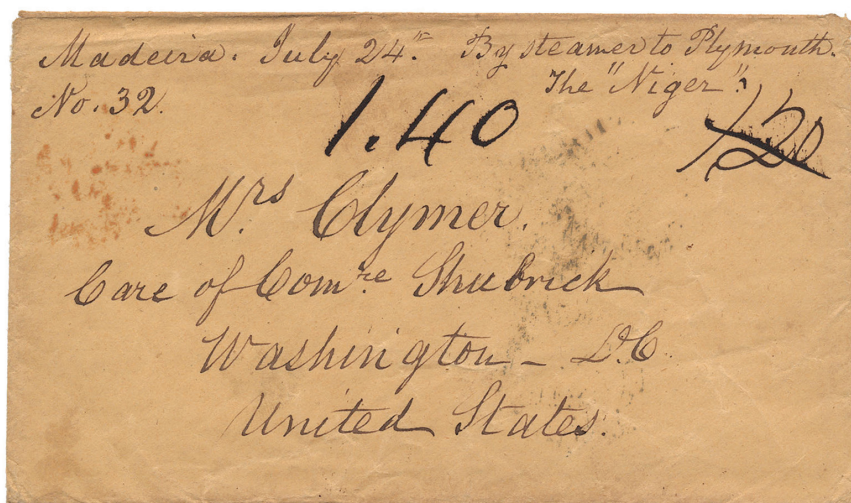 Madeira. July 24th. By steamer to Plymouth.
The "Niger".
No. 32.
1.40
1,20
Mrs Clymer.
Care of Comre Shubrick
Washington – D.C
United States.